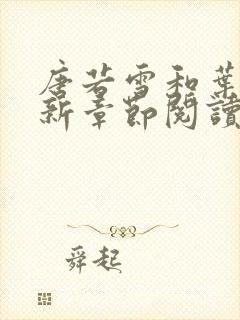 唐若雪和葉
新章節閱讀
舜起